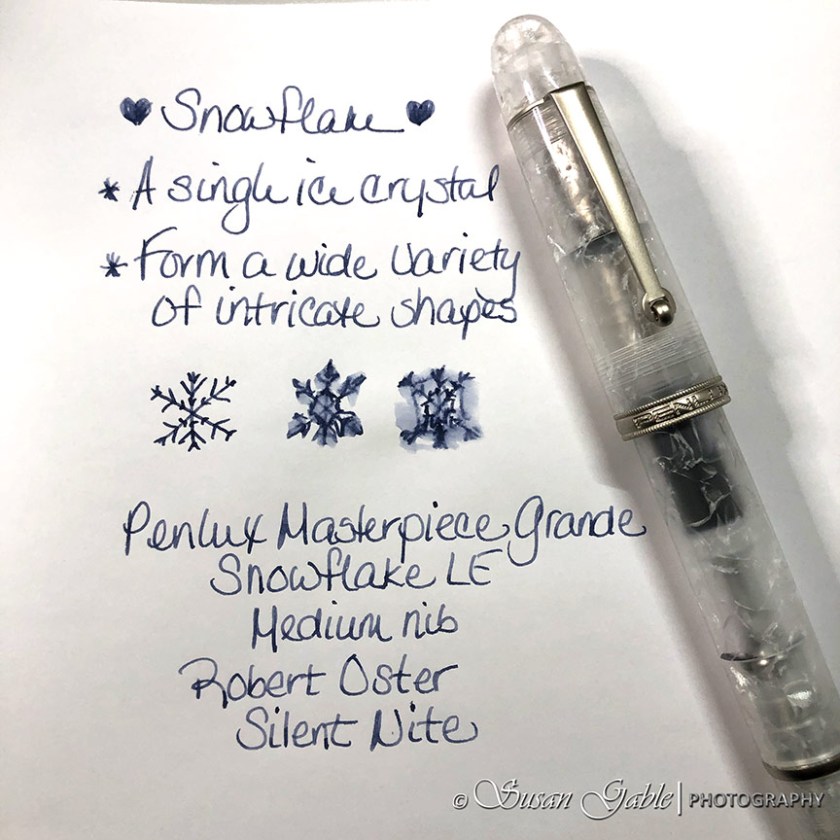 ♥ Snowflake ♥
* A single ice crystal
* Form a wide variety
of intricate shapes
Penlux Masterpiece Grande
Snowflake LE
Medium nib
Robert Oster
Silent Nite
PENLUX
© Susan Gable | PHOTOGRAPHY